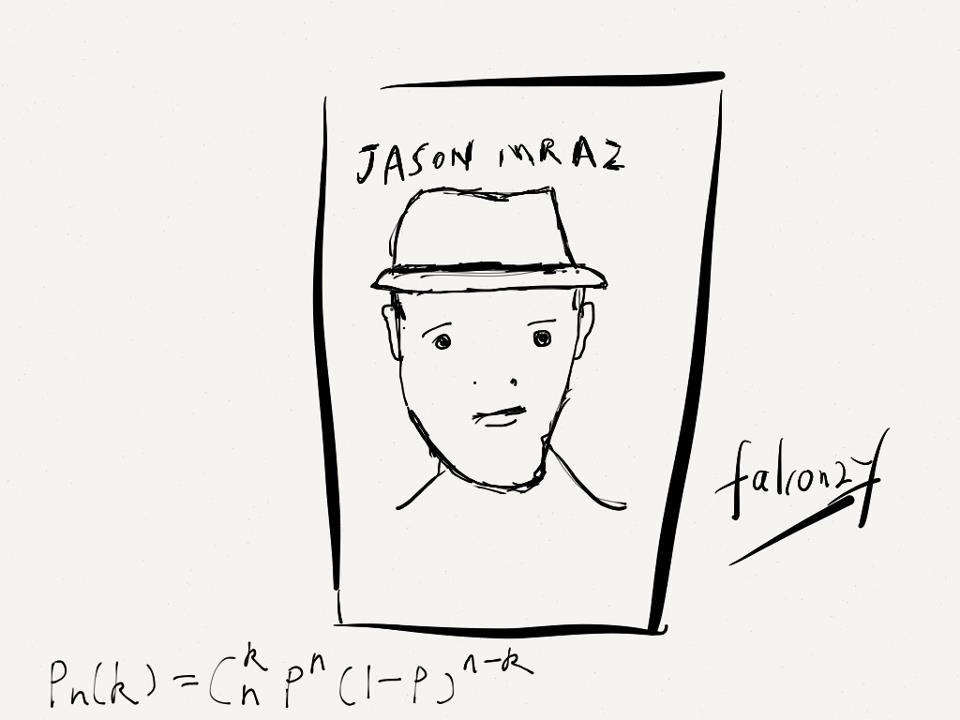 JASON MRAZ
falcon27
Pn(k) = C_n^k p^n (1-p)^{n-k}